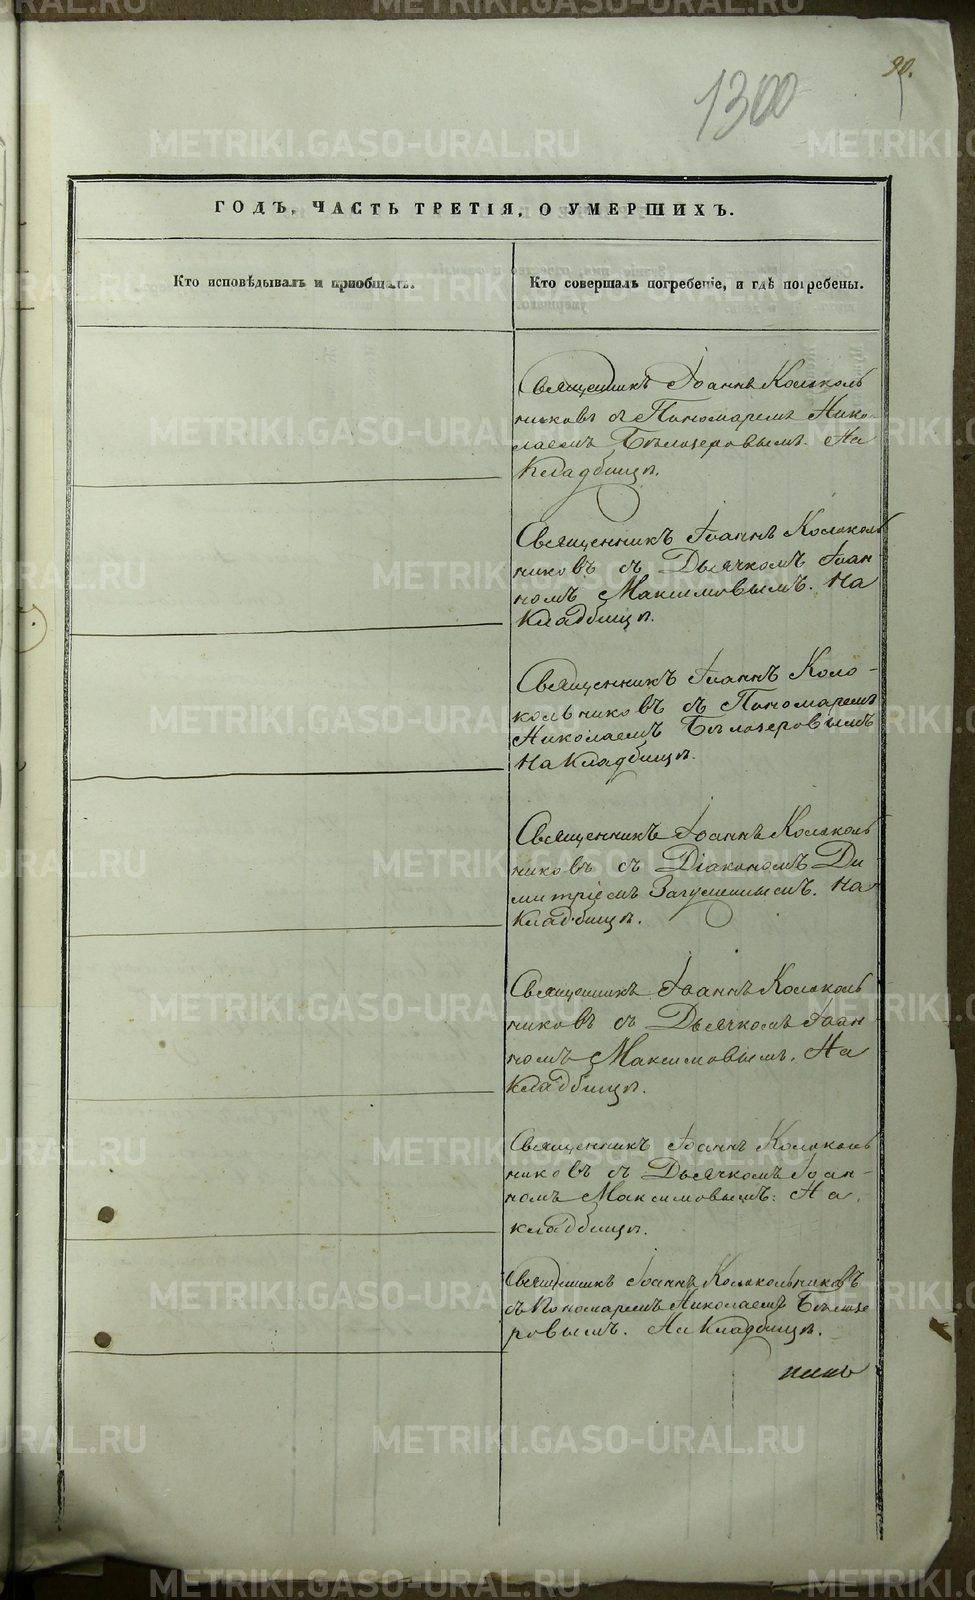 90.
1300
ГОДЪ, ЧАСТЬ ТРЕТІЯ, О УМЕРШИХЪ.
Кто исповѣдывалъ и пріобщалъ.
Кто совершалъ погребеніе, и гдѣ погребены.
Священникъ Іоаннъ Колоколь
никовъ съ Пономаремъ Нико-
лаемъ Бѣлозеровымъ. На
Кладбищѣ.
Священникъ Іоаннъ Колоколь
никовъ съ Дьячкомъ Іоан-
номъ Максимовымъ. На
Кладбищѣ.
Священникъ Іоаннъ Коло-
кольниковъ съ Пономаремъ
Николаемъ Бѣлозеровымъ
На Кладбищѣ.
Священникъ Іоаннъ Колоколь
никовъ съ Діакономъ Ди-
митріемъ Загуменнымъ. На
Кладбищѣ.
Священникъ Іоаннъ Колоколь
никовъ съ Дьячкомъ Іоан-
номъ Максимовымъ. На
Кладбищѣ.
Священникъ Іоаннъ Колоколь
никовъ съ Дьячкомъ Іоан-
номъ Максимовымъ. На
кладбищѣ.
Священникъ Іоаннъ Колокольниковъ
съ Пономаремъ Николаемъ Бѣлозе
ровымъ. На Кладбищѣ.
METRIKI.GASO-URAL.RU